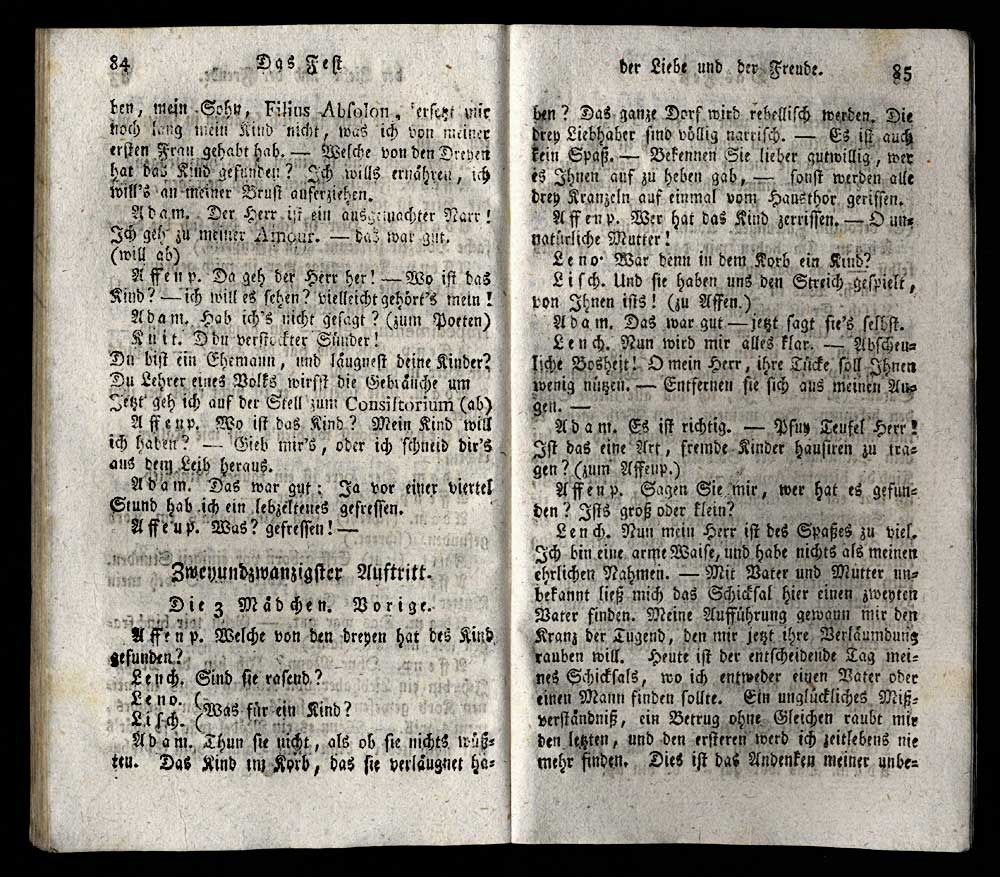 84 Das Fest
ben, mein Sohn, Filius Absolon, ersetzt mir
noch lang mein Kind nicht, was ich von meiner
ersten Frau gehabt hab. — Welche von den Dreyen
hat das Kind gefunden? Ich wills ernähren, ich
will's an meiner Brust auferziehen.
Adam. Der Herr ist ein ausgemachter Narr!
Ich geh zu meiner Amour. — das war gut.
(will ab)
Affenp. Da geh der Herr her! — Wo ist das
Kind? — ich will es sehen? vielleicht gehört's mein!
Adam. Hab ich's nicht gesagt? (zum Poeten)
Knit. O du verstockter Sünder!
Du bist ein Ehemann, und läugnest deine Kinder?
Du Lehrer eines Volks wirfst die Gebräuche um
Jetzt geh ich auf der Stell zum Consistorium (ab)
Affenp. Wo ist das Kind? Mein Kind will
ich haben? — Gieb mir's, oder ich schneid dir's
aus dem Leib heraus.
Adam. Das war gut: Ja vor einer viertel
Stund hab ich ein lebzeltenes gefressen.
Affenp. Was? gefressen! —
Zweyundzwanzigster Auftritt.
Die 3 Mädchen. Vorige.
Affenp. Welche von den dreyen hat des Kind
gefunden?
Lench. Sind sie rasend?
Leno. (
Lisch. (Was für ein Kind?
Adam. Thun sie nicht, als ob sie nichts wüß-
ten. Das Kind im Korb, das sie verläugnet ha-
der Liebe und der Freude. 85
ben? Das ganze Dorf wird rebellisch werden. Die
drey Liebhaber sind völlig narrisch. — Es ist auch
kein Spaß. — Bekennen Sie lieber gutwillig, wer
es Ihnen auf zu heben gab, — sonst werden alle
drey Kranzeln auf einmal vom Hausthor gerissen.
Affenp. Wer hat das Kind zerrissen. — O un-
natürliche Mutter!
Leno. War denn in dem Korb ein Kind?
Lisch. Und sie haben uns den Streich gespielt,
von Ihnen ists! (zu Affen.)
Adam. Das war gut — jetzt sagt sie's selbst.
Lench. Nun wird mir alles klar. — Abscheu-
liche Bosheit! O mein Herr, ihre Tücke soll Ihnen
wenig nützen. — Entfernen sie sich aus meinen Au-
gen. —
Adam. Es ist richtig. — Pfuy Teufel Herr!
Ist das eine Art, fremde Kinder hausiren zu tra-
gen? (zum Affenp.)
Affenp. Sagen Sie mir, wer hat es gefun-
den? Ists groß oder klein?
Lench. Nun mein Herr ist des Spaßes zu viel.
Ich bin eine arme Waise, und habe nichts als meinen
ehrlichen Nahmen. — Mit Vater und Mutter un-
bekannt ließ mich das Schicksal hier einen zweyten
Vater finden. Meine Aufführung gewann mir den
Kranz der Tugend, den mir jetzt ihre Verläumdung
rauben will. Heute ist der entscheidende Tag mei-
nes Schicksals, wo ich entweder einen Vater oder
einen Mann finden sollte. Ein unglückliches Miß-
verständniß, ein Betrug ohne Gleichen raubt mir
den letzten, und den ersteren werd ich zeitlebens nie
mehr finden. Dies ist das Andenken meiner unbe-